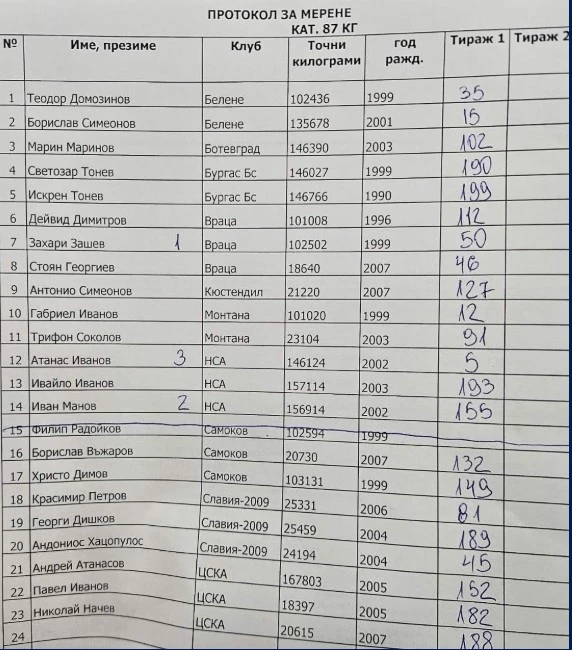 ПРОТОКОЛ ЗА МЕРЕНЕ
КАТ. 87 КГ
№ Име, презиме Клуб Точни килограми год ражд. Тираж 1 Тираж 2
1 Теодор Домозинов Белене 102436 1999 35
2 Борислав Симеонов Белене 135678 2001 15
3 Марин Маринов Ботевград 146390 2003 102
4 Светозар Тонев Бургас Бс 146027 1999 190
5 Искрен Тонев Бургас Бс 146766 1990 199
6 Дейвид Димитров Враца 101008 1996 112
7 Захари Зашев 1 Враца 102502 1999 50
8 Стоян Георгиев Враца 18640 2007 46
9 Антонио Симеонов Кюстендил 21220 2007 127
10 Габриел Иванов Монтана 101020 1999 12
11 Трифон Соколов Монтана 23104 2003 91
12 Атанас Иванов 3 НСА 146124 2002 5
13 Ивайло Иванов НСА 157114 2003 193
14 Иван Манов 2 НСА 156914 2002 155
15 Филип Радойков Самоков 102594 1999
16 Борислав Въжаров Самоков 20730 2007 132
17 Христо Димов Самоков 103131 1999 149
18 Красимир Петров Славия-2009 25331 2006 81
19 Георги Дишков Славия-2009 25459 2004 189
20 Андониос Хацопулос Славия-2009 24194 2004 45
21 Андрей Атанасов ЦСКА 167803 2005 152
22 Павел Иванов ЦСКА 18397 2005 182
23 Николай Начев ЦСКА 20615 2007 188
24